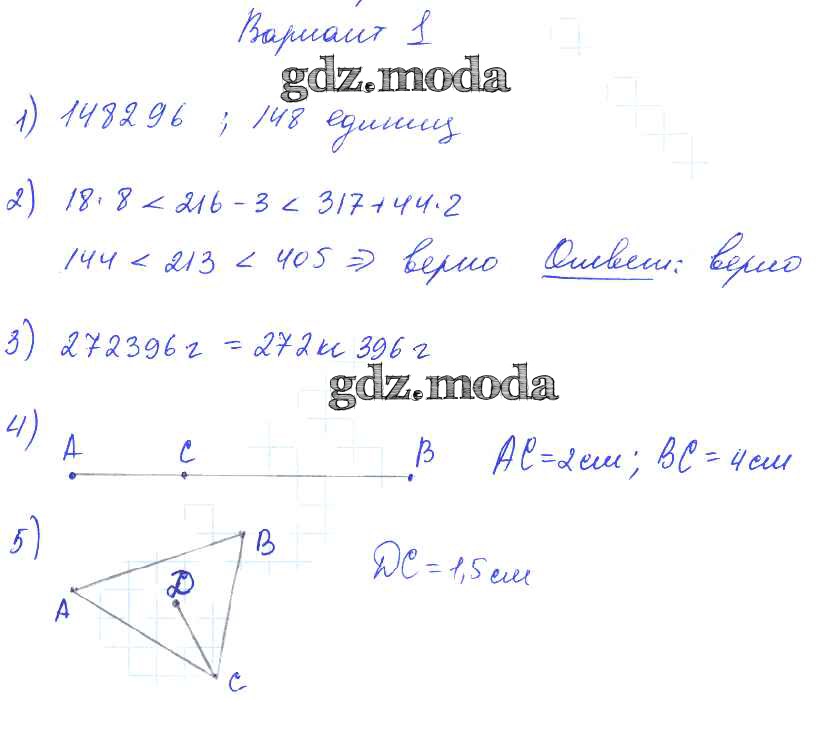 Вариант 1
gdz.moda
1) 148296 ; 148 единиц
2) 18·8 < 216 - 3 < 317 + 44·2
144 < 213 < 405 => верно Ответ: верно
3) 272396 г = 272 кг 396 г
gdz.moda
4) A C B AC = 2 см ; BC = 4 см
5) A B C D DC = 1,5 см